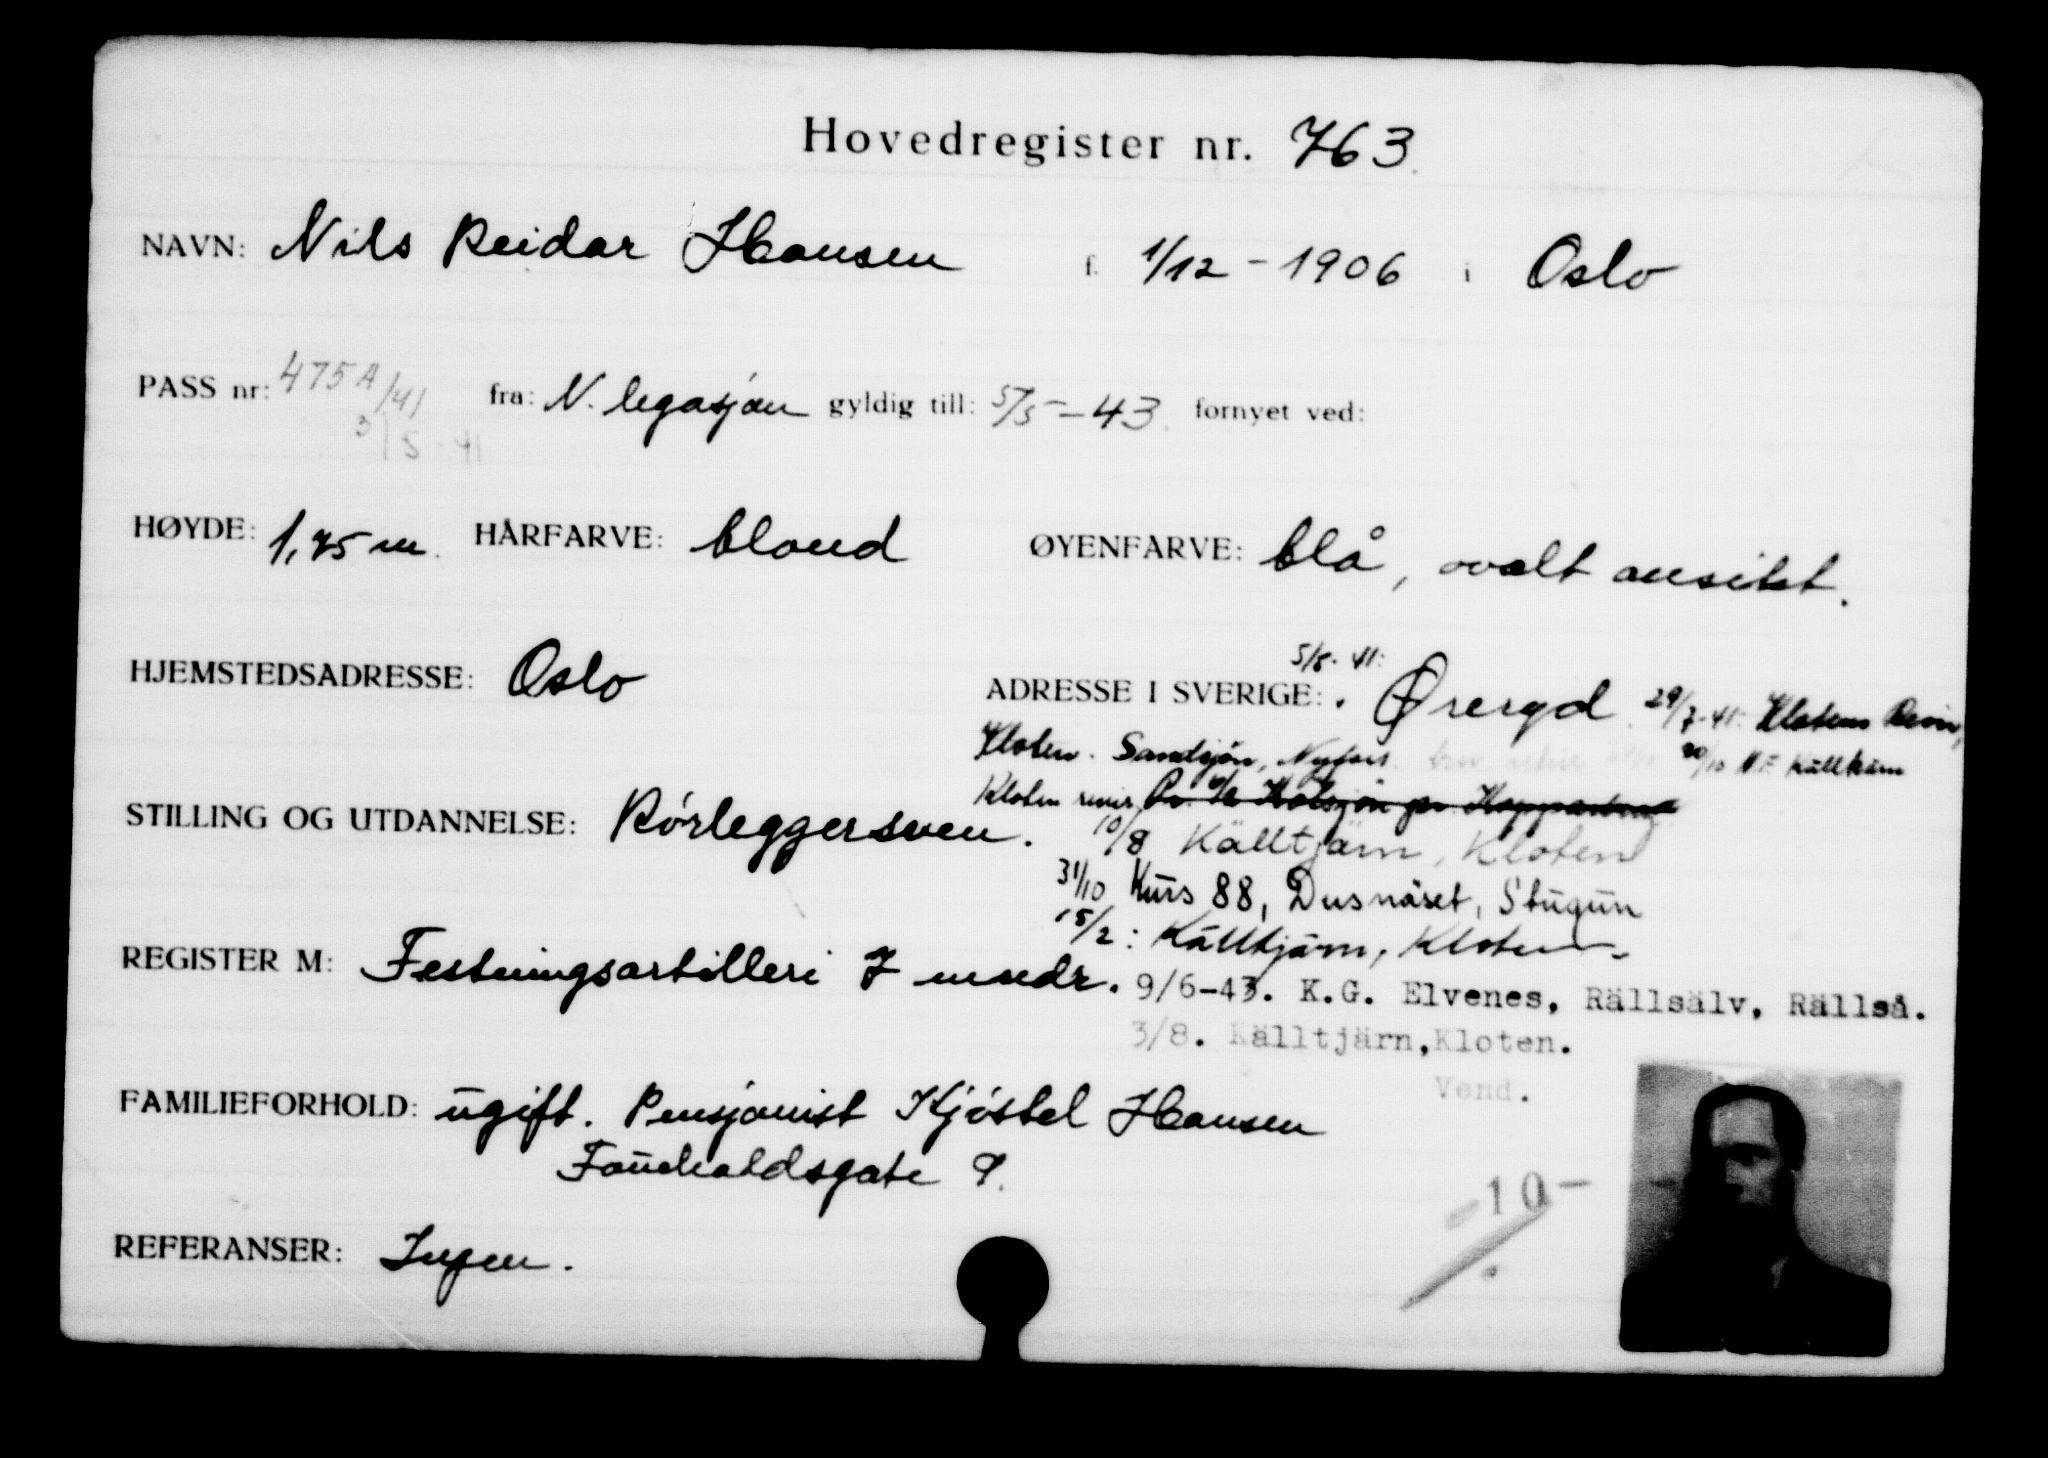 Hovedregister nr. 763.
NAVN: Nils Reidar Hansen f. 1/12 - 1906 i Oslo
PASS nr: 475A/41 fra: N. legasjon gyldig till: 5/5 - 43. fornyet ved:
3/5-41
HØYDE: 1,75 m. HÅRFARVE: blond ØYENFARVE: blå, ovalt ansikt.
HJEMSTEDSADRESSE: Oslo
5/5-41:
ADRESSE I SVERIGE: Øreryd 29/7-41: Klotens Revir,
Kloten. Sandsjön, Nyfors. 20/10 Källtjärn
Kloten revir,
STILLING OG UTDANNELSE: Rørleggersven.
10/8 Källtjärn, Kloten
31/10 Kurs 88, Dusnäset, Stugun
15/2: Källtjärn, Kloten
REGISTER M: Festningsartilleri 7 mndr.
9/6-43. K.G. Elvenes, Rällsälv, Rällså.
3/8. Källtjärn, Kloten.
Vend.
FAMILIEFORHOLD: ugift. Pensjonist Kjøstel Hansen
Fauchaldsgate 9.
-10-
REFERANSER: Ingen.